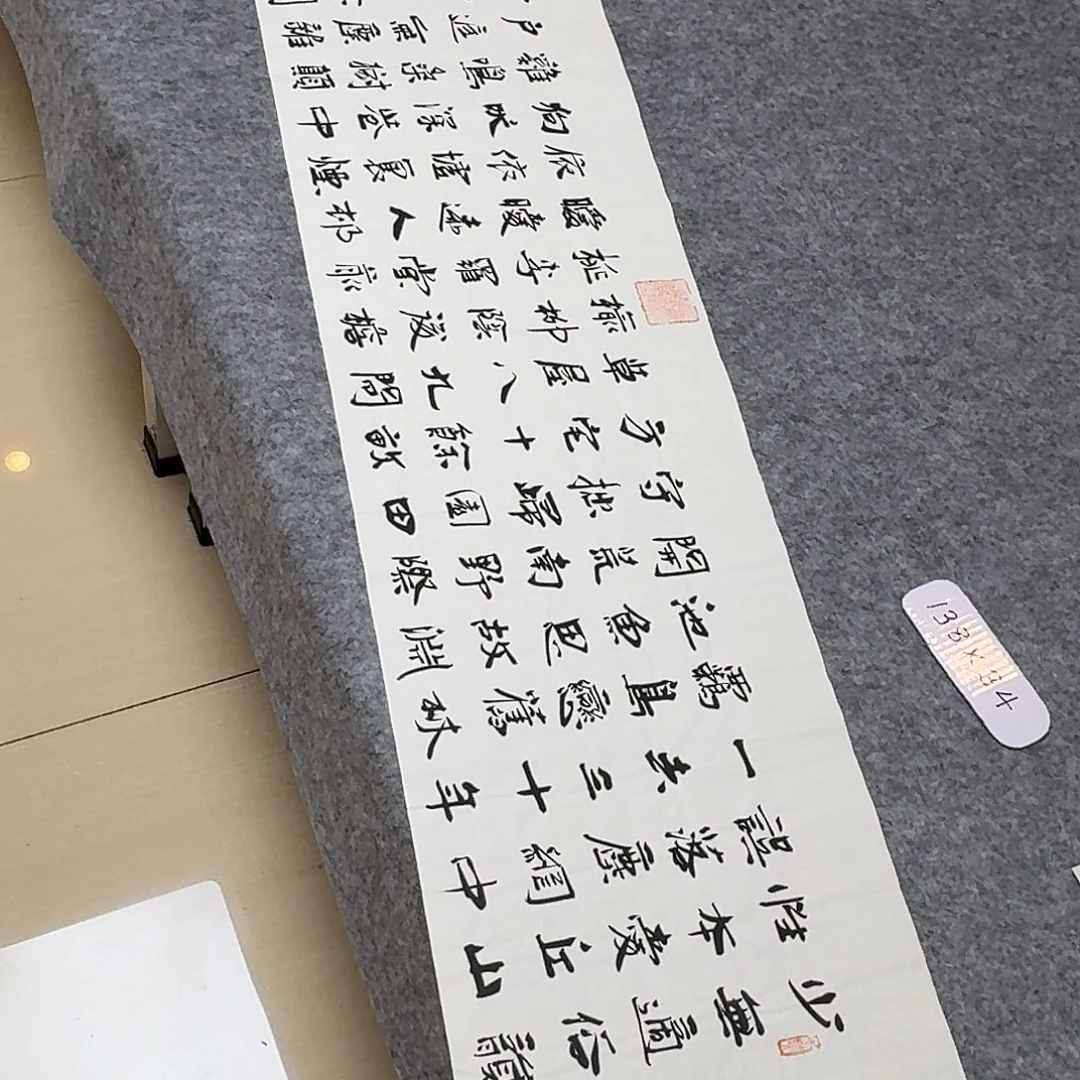 少無適俗韻
性本愛丘山
誤落塵網中
一去三十年
羈鳥戀舊林
池魚思故淵
開荒南野際
守拙歸園田
方宅十餘畝
草屋八九間
榆柳蔭後檐
桃李羅堂前
曖曖遠人邨
依依墟裏煙
狗吠深巷中
雞鳴桑樹顛
戶庭無塵雜
138×34